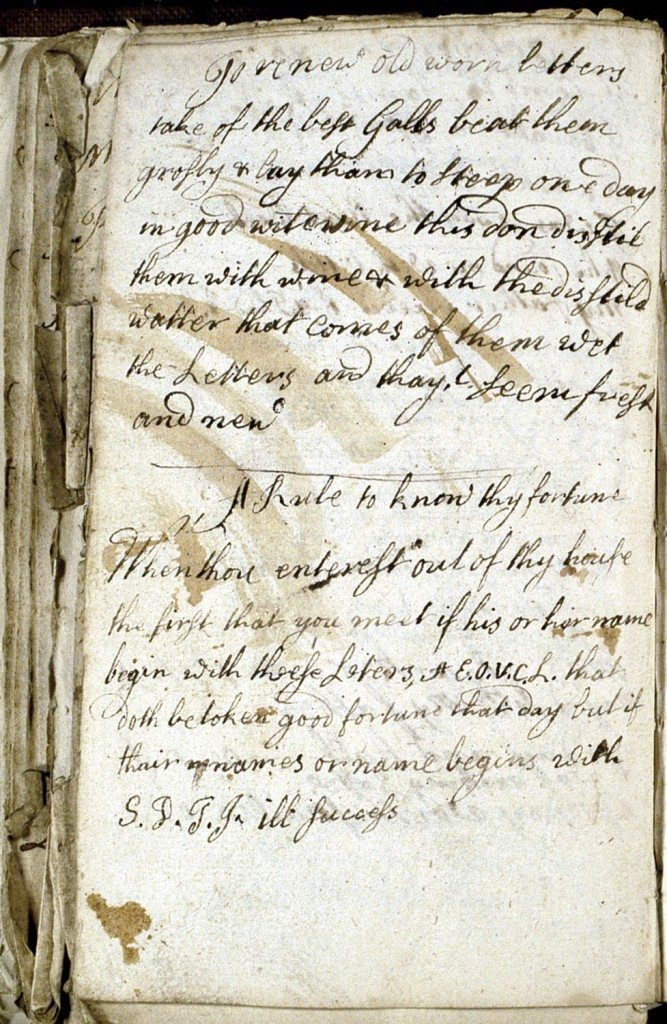 To renew old worn Letters
take of the best Galls beat them
grosly & lay tham to steep one day
in good witewine this don distil
them with wine & with the distild
watter that comes of them wet
the Letters and thay,l seem fresh
and new
A Rule to know thy fortune
When thou enterest out of thy house
the first that you meet if his or her name
begin with these Leters, A E.O.V.C.L. that
doth betoken good fortune that day but if
thair names or name begins with
S. D. T. J. ill success